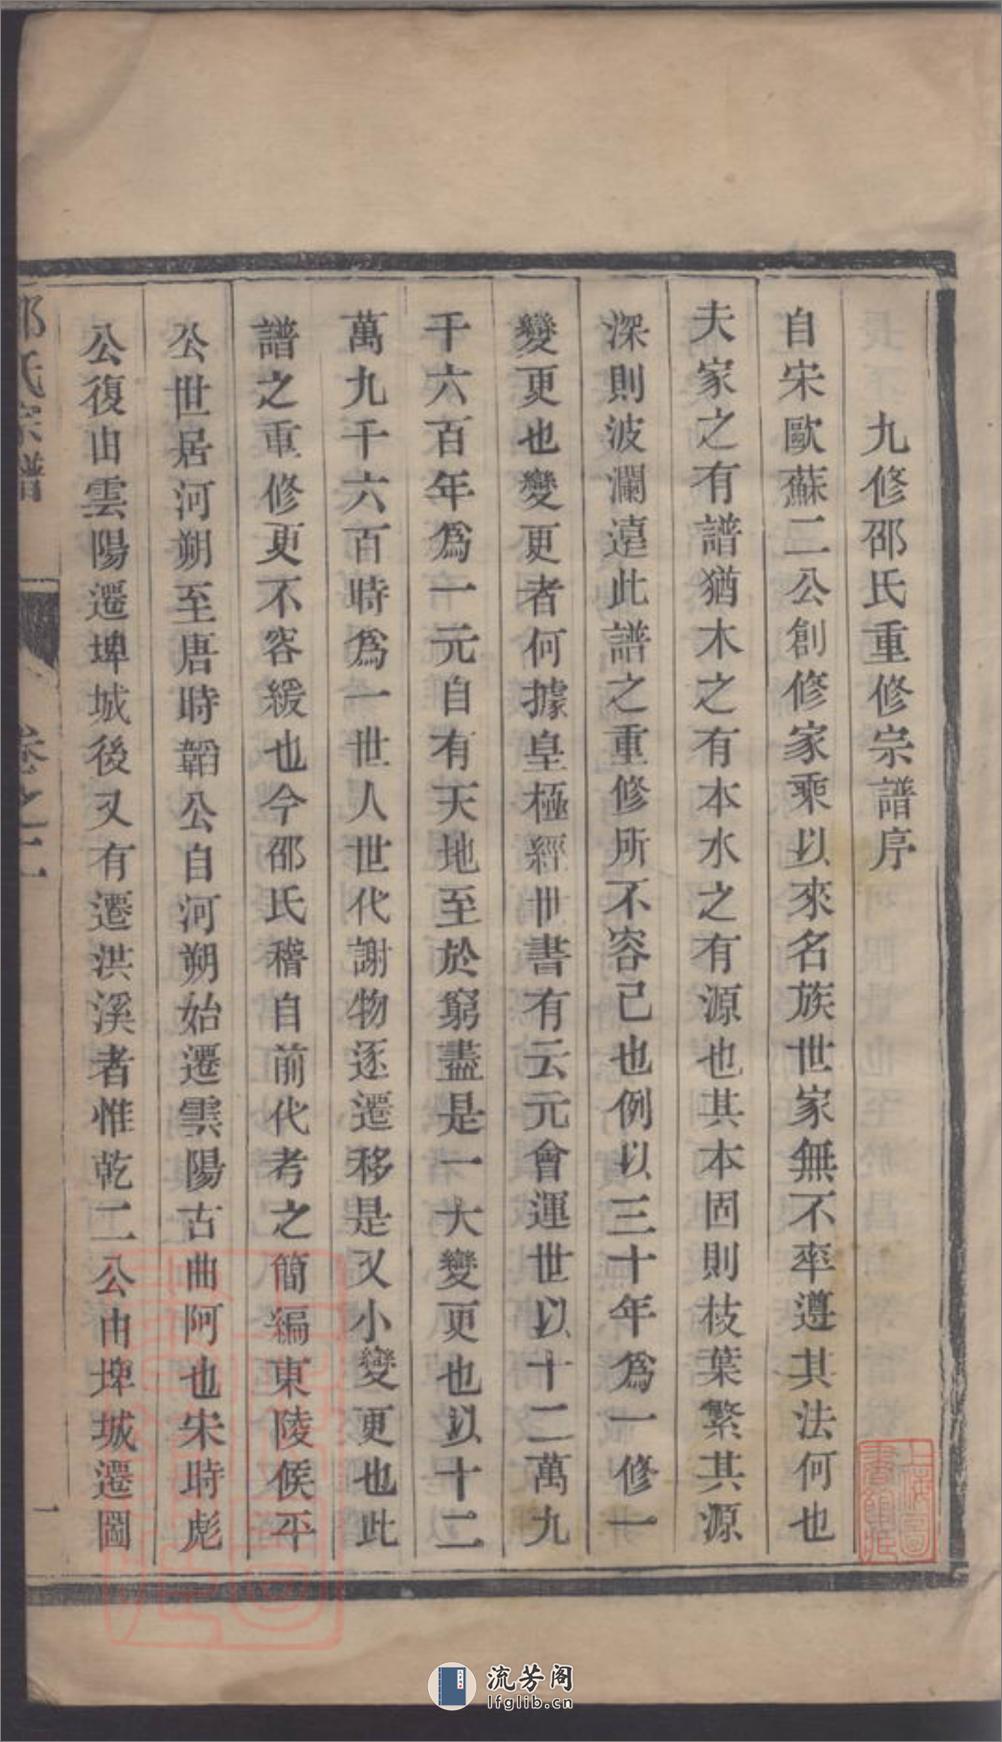 九修邵氏重修宗譜序
自宋歐蘇二公創修家乘以來名族世家無不率遵其法何也
夫家之有譜猶木之有本水之有源也其本固則枝葉繁其源
深則波瀾遠此譜之重修所不容已也例以三十年爲一修一
變更也變更者何據皇極經世書有云元會運世以十二萬九
千六百年爲一元自有天地至於窮盡是一大變更也以十二
萬九千六百時爲一世人世代謝物逐遷移是又小變更也此
譜之重修更不容緩也今邵氏稽自前代考之簡編東陵侯平
公世居河朔至唐時韜公自河朔始遷雲陽古曲阿也宋時彪
公復由雲陽遷埤城後又有遷洪溪者惟乾二公由埤城遷圖
邵氏宗譜
卷之一
一
上海圖書館藏
流芳阁
lfglib.cn